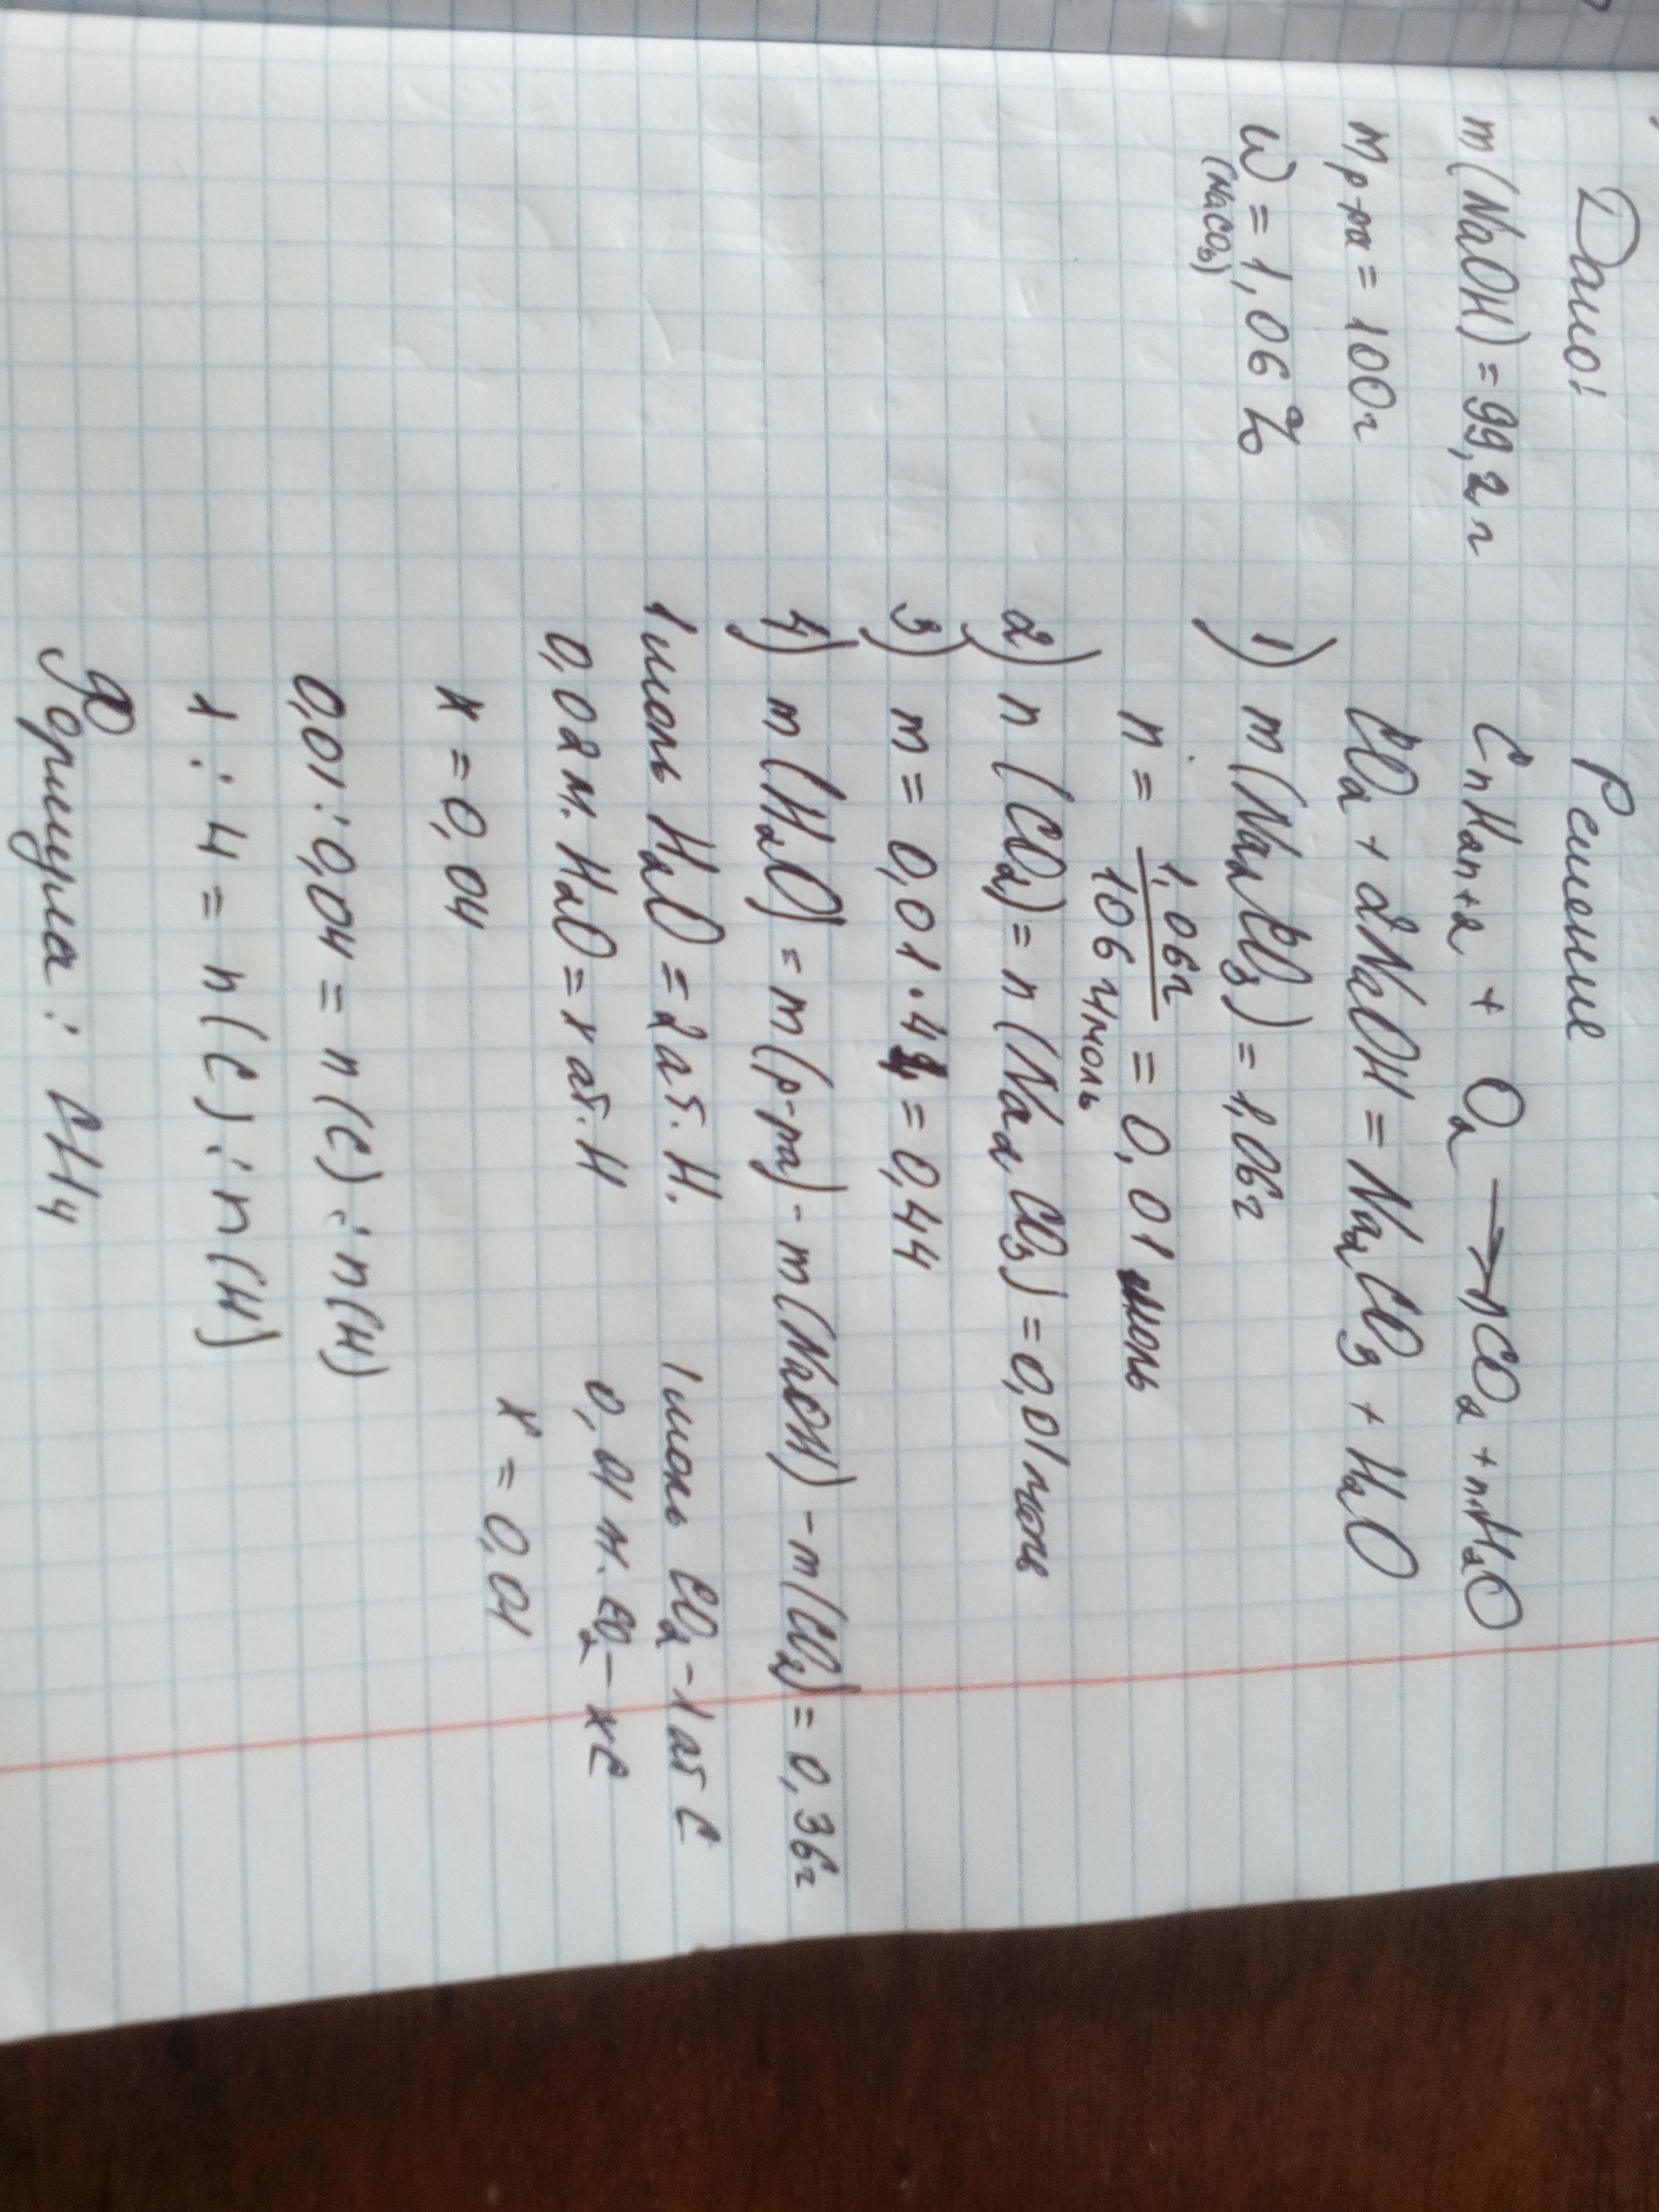 Дано:
m(NaOH) = 99,2 г
m р-ра = 100 г
W = 1,06 %
(NaCO₃)
Решение
CnH2n+2 + O₂ → nCO₂ + nH₂O
CO₂ + 2NaOH = Na₂CO₃ + H₂O
1) m(Na₂CO₃) = 1,06 г
n = 1,06 г / 106 г/моль = 0,01 моль
2) n(CO₂) = n(Na₂CO₃) = 0,01 моль
3) m = 0,01 · 44 = 0,44
4) m(H₂O) = m(р-ра) - m(NaOH) - m(CO₂) = 0,36 г
1 моль H₂O = 2 ат. H. 1 моль CO₂ - 1 ат C
0,02 м. H₂O = x ат. H 0,01 м. CO₂ - xC
x = 0,04 x = 0,01
0,01 : 0,04 = n(C) : n(H)
1 : 4 = n(C) : n(H)
Формула: CH₄